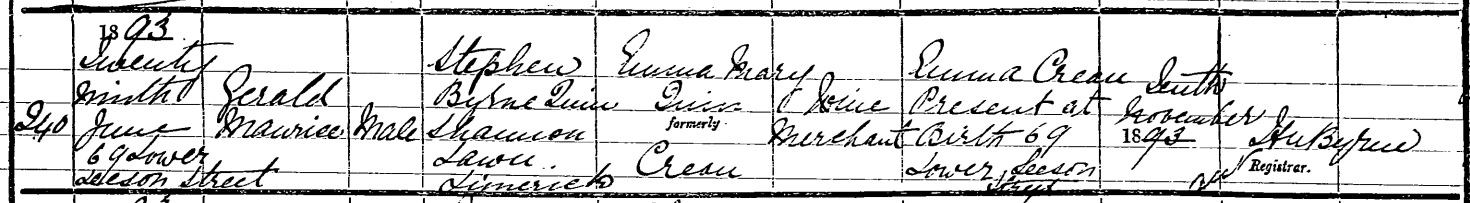 240
1893
Twenty
ninth
June
69 Lower
Leeson Street
Gerald
Maurice
Male
Stephen
Byrne Quin
Shannon
Lawn.
Limerick
Emma Mary
Quin
formerly
Crean
Wine
Merchant
Emma Crean
Present at
Birth 69
Lower Leeson
Street
Tenth
November
1893
Byrne
Registrar.